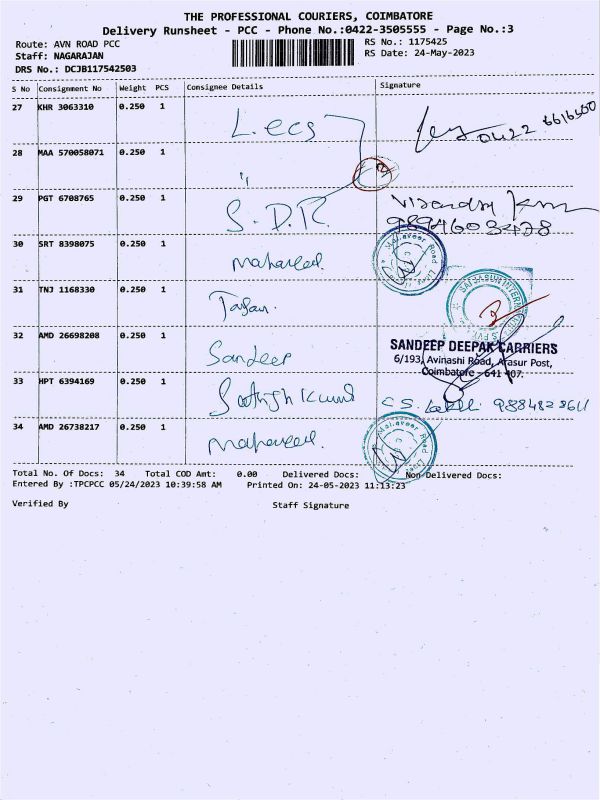 THE PROFESSIONAL COURIERS, COIMBATORE
Delivery Runsheet - PCC - Phone No.:0422-3505555 - Page No.:3
Route: AVN ROAD PCC
RS No.: 1175425
Staff: NAGARAJAN
RS Date: 24-May-2023
DRS No.: DCJB117542503
S No Consignment No Weight PCS Consignee Details Signature
27 KHR 3063310 0.250 1 L.ecs 0422 6616500
28 MAA 570058071 0.250 1 "
29 PGT 6708765 0.250 1 S.D.R.
9894603478
30 SRT 8398075 0.250 1 Mahaveer
31 TNJ 1168330 0.250 1
32 AMD 26698208 0.250 1 Sandeep
SANDEEP DEEPAK CARRIERS
6/193, Avinashi Road, Arasur Post,
Coimbatore - 641 407.
33 HPT 6394169 0.250 1 Sathish Kumar
34 AMD 26738217 0.250 1 Mahaveer
Total No. Of Docs: 34 Total COD Amt: 0.00 Delivered Docs: Non-Delivered Docs:
Entered By :TPCPCC 05/24/2023 10:39:58 AM Printed On: 24-05-2023 11:13:23
Verified By Staff Signature